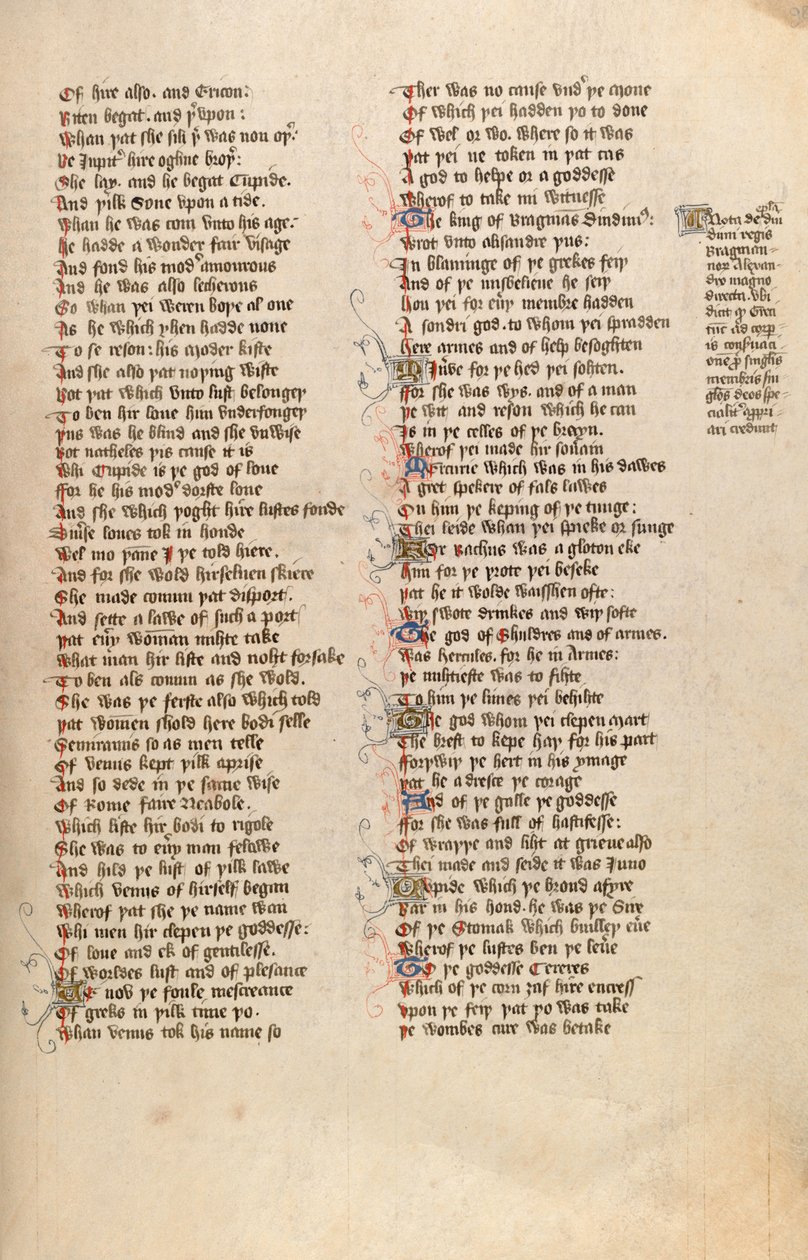 Of hire also. and Ericon:
Riten begat. and þͬ vpon:
Whan þat she sih þͬ was non oþͬ.
Be Jupitͬ hire oghne broþͬ:
She lay. and he begat Cupide.
And þilk Sone vpon a tide.
Whan he was com vnto his age.
He hadde a wonder fair visage
And fond his modͬ amourous
And he was also lecherous
So whan þei weren boþe al one
As he which yhen hadde none
To se reson: his moder kiste
And she also þat noþing wiste
Bot þat which vnto lust belongeþ
To ben hir loue him vnderfongeþ
Þus was he blind and she vnwise
Bot natheles þis cause it is
Whi Cupide is þe god of loue
ffor he his modͬ dorste loue
And she which þoght hire lustes fonde
Diuͬse loues tok in honde
Wel mo þane I þe told hiere.
And for she wold hirseluen skiere
She made comun þat disport.
And sette a lawe of such a port
Þat euͬy woman mihte take
What man hir liste and noht forsake
To ben als comun as she wold.
She was þe ferste also which told
Þat wom̄en shold here bodi selle
Semiramis so as men telle
Of venus kept þilk aprise
And so dede in þe same wise
Of Rome faire Neabole.
Which liste hir bodi to rigole
She was to euͬy man felawe
And hild þe lust of þilk lawe
Which venus of hirself began
Wherof þat she þe name wan
Whi men hir clepen þe goddesse:
Of loue and ek of gentilesse.
Of worldes lust and of plesance
Se nov þe foule mescreance
Of greks in þilk time þo.
Whan venus tok his name so
Ther was no cause vndͬ þe mone
Of which þei hadden þo to done
Of wel or wo. where so it was
Þat þei ne token in þat cas
A god to helpe or a goddesse
Wherof to take mi witnesse
The king of Bragmas Dindimͬ:
Wrot vnto alisandre þus:
In blaminge of þe grekes feiþ
And of þe misbelieue he seiþ
Hou þei for euͬy membre hadden
A sondri god. to whom þei spradden
Here armes and of help besoghten
Minͬve for þe hed þei sohten.
ffor she was wys. and of a man
Þe wit and reson which he can
Is in þe celles of þe brayn.
Wherof þei made hir souͬain
Mercurie which was in his dawes
A gret spekere of fals lawes
On him þe keping of þe tunge:
Thei leide whan þei spieke or sunge
For Bachus was a gloton eke
Him for þe þrote þei beseke
Þat he it wolde waisshen ofte:
Wiþ swote drinkes and wiþ softe
The god of Shuldres and of armes.
Was hercules. for he in Armes:
Þe mihtieste was to fihte
To him þe limes þei behihte
The god whom þei clepen mart
The brest to kepe haþ for his part
fforþwiþ þe hert in his ymage
Þat he adresce þe corage
And of þe galle þe goddesse
ffor she was full of hastifesse:
Of wraþþe and liht at grieue also
Thei made and seide it was Juno
Cupide which þe brond afyre
Bar in his hond. he was þe Sire
Of þe Stomak which builleþ euͬe
Wherof þe lustes ben þe leuͬe
To þe goddesse Cereres
Which of þe corn ȝaf hire encress
Vpon þe feiþ þat þo was take
Þe wombes cure was betake
Nota de epl̄a din
dimi regis
Bragman-
nor alexan-
dro magno
directa. vbi
dicit qͥ Greci
tūc ad corp̄
is conseruaci-
onē p̄ singlis
membris sin
glͦos deos spe-
cialitͬ appri-
ari credunt